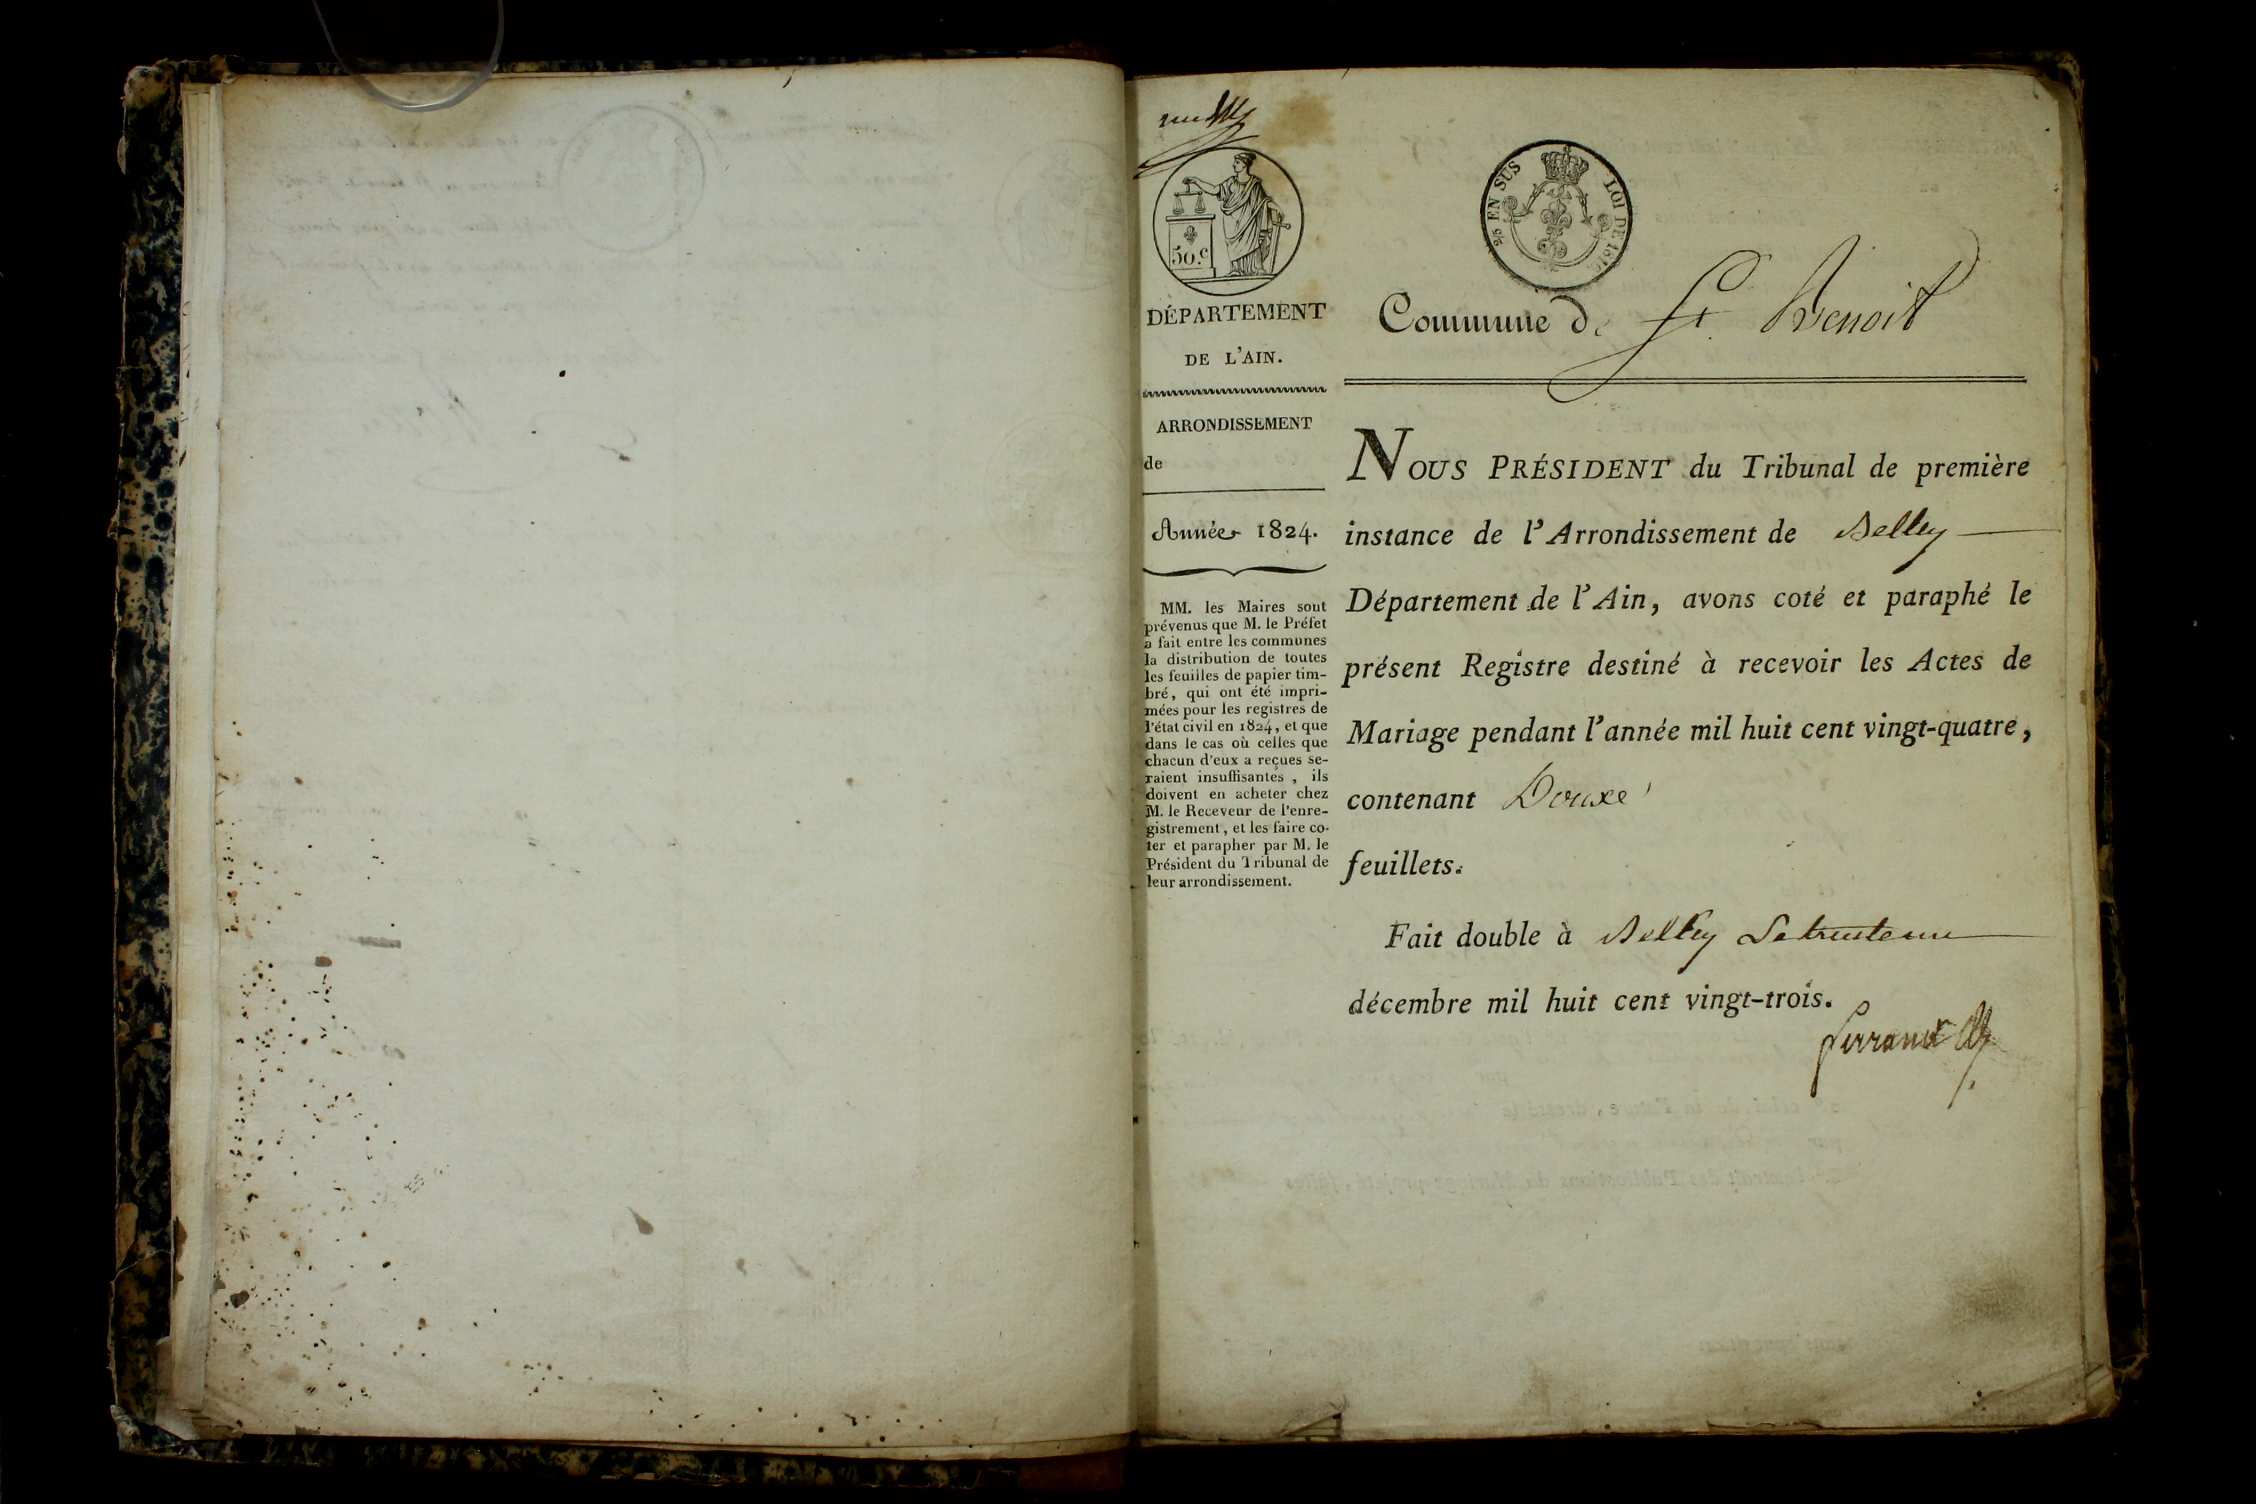 50.c
2/5 EN SUS LOI DE 1816
DÉPARTEMENT
DE L'AIN.
ARRONDISSEMENT
de
Année 1824.
MM. les Maires sont
prévenus que M. le Préfet
a fait entre les communes
la distribution de toutes
les feuilles de papier tim-
bré, qui ont été impri-
mées pour les registres de
l'état civil en 1824, et que
dans le cas où celles que
chacun d'eux a reçues se-
raient insuffisantes, ils
doivent en acheter chez
M. le Receveur de l'enre-
gistrement, et les faire co-
ter et parapher par M. le
Président du Tribunal de
leur arrondissement.
Commune de St. Benoit
NOUS PRÉSIDENT du Tribunal de première
instance de l'Arrondissement de Belley
Département de l'Ain, avons coté et paraphé le
présent Registre destiné à recevoir les Actes de
Mariage pendant l'année mil huit cent vingt-quatre,
contenant Douze
feuillets.
Fait double à Belley
décembre mil huit cent vingt-trois.